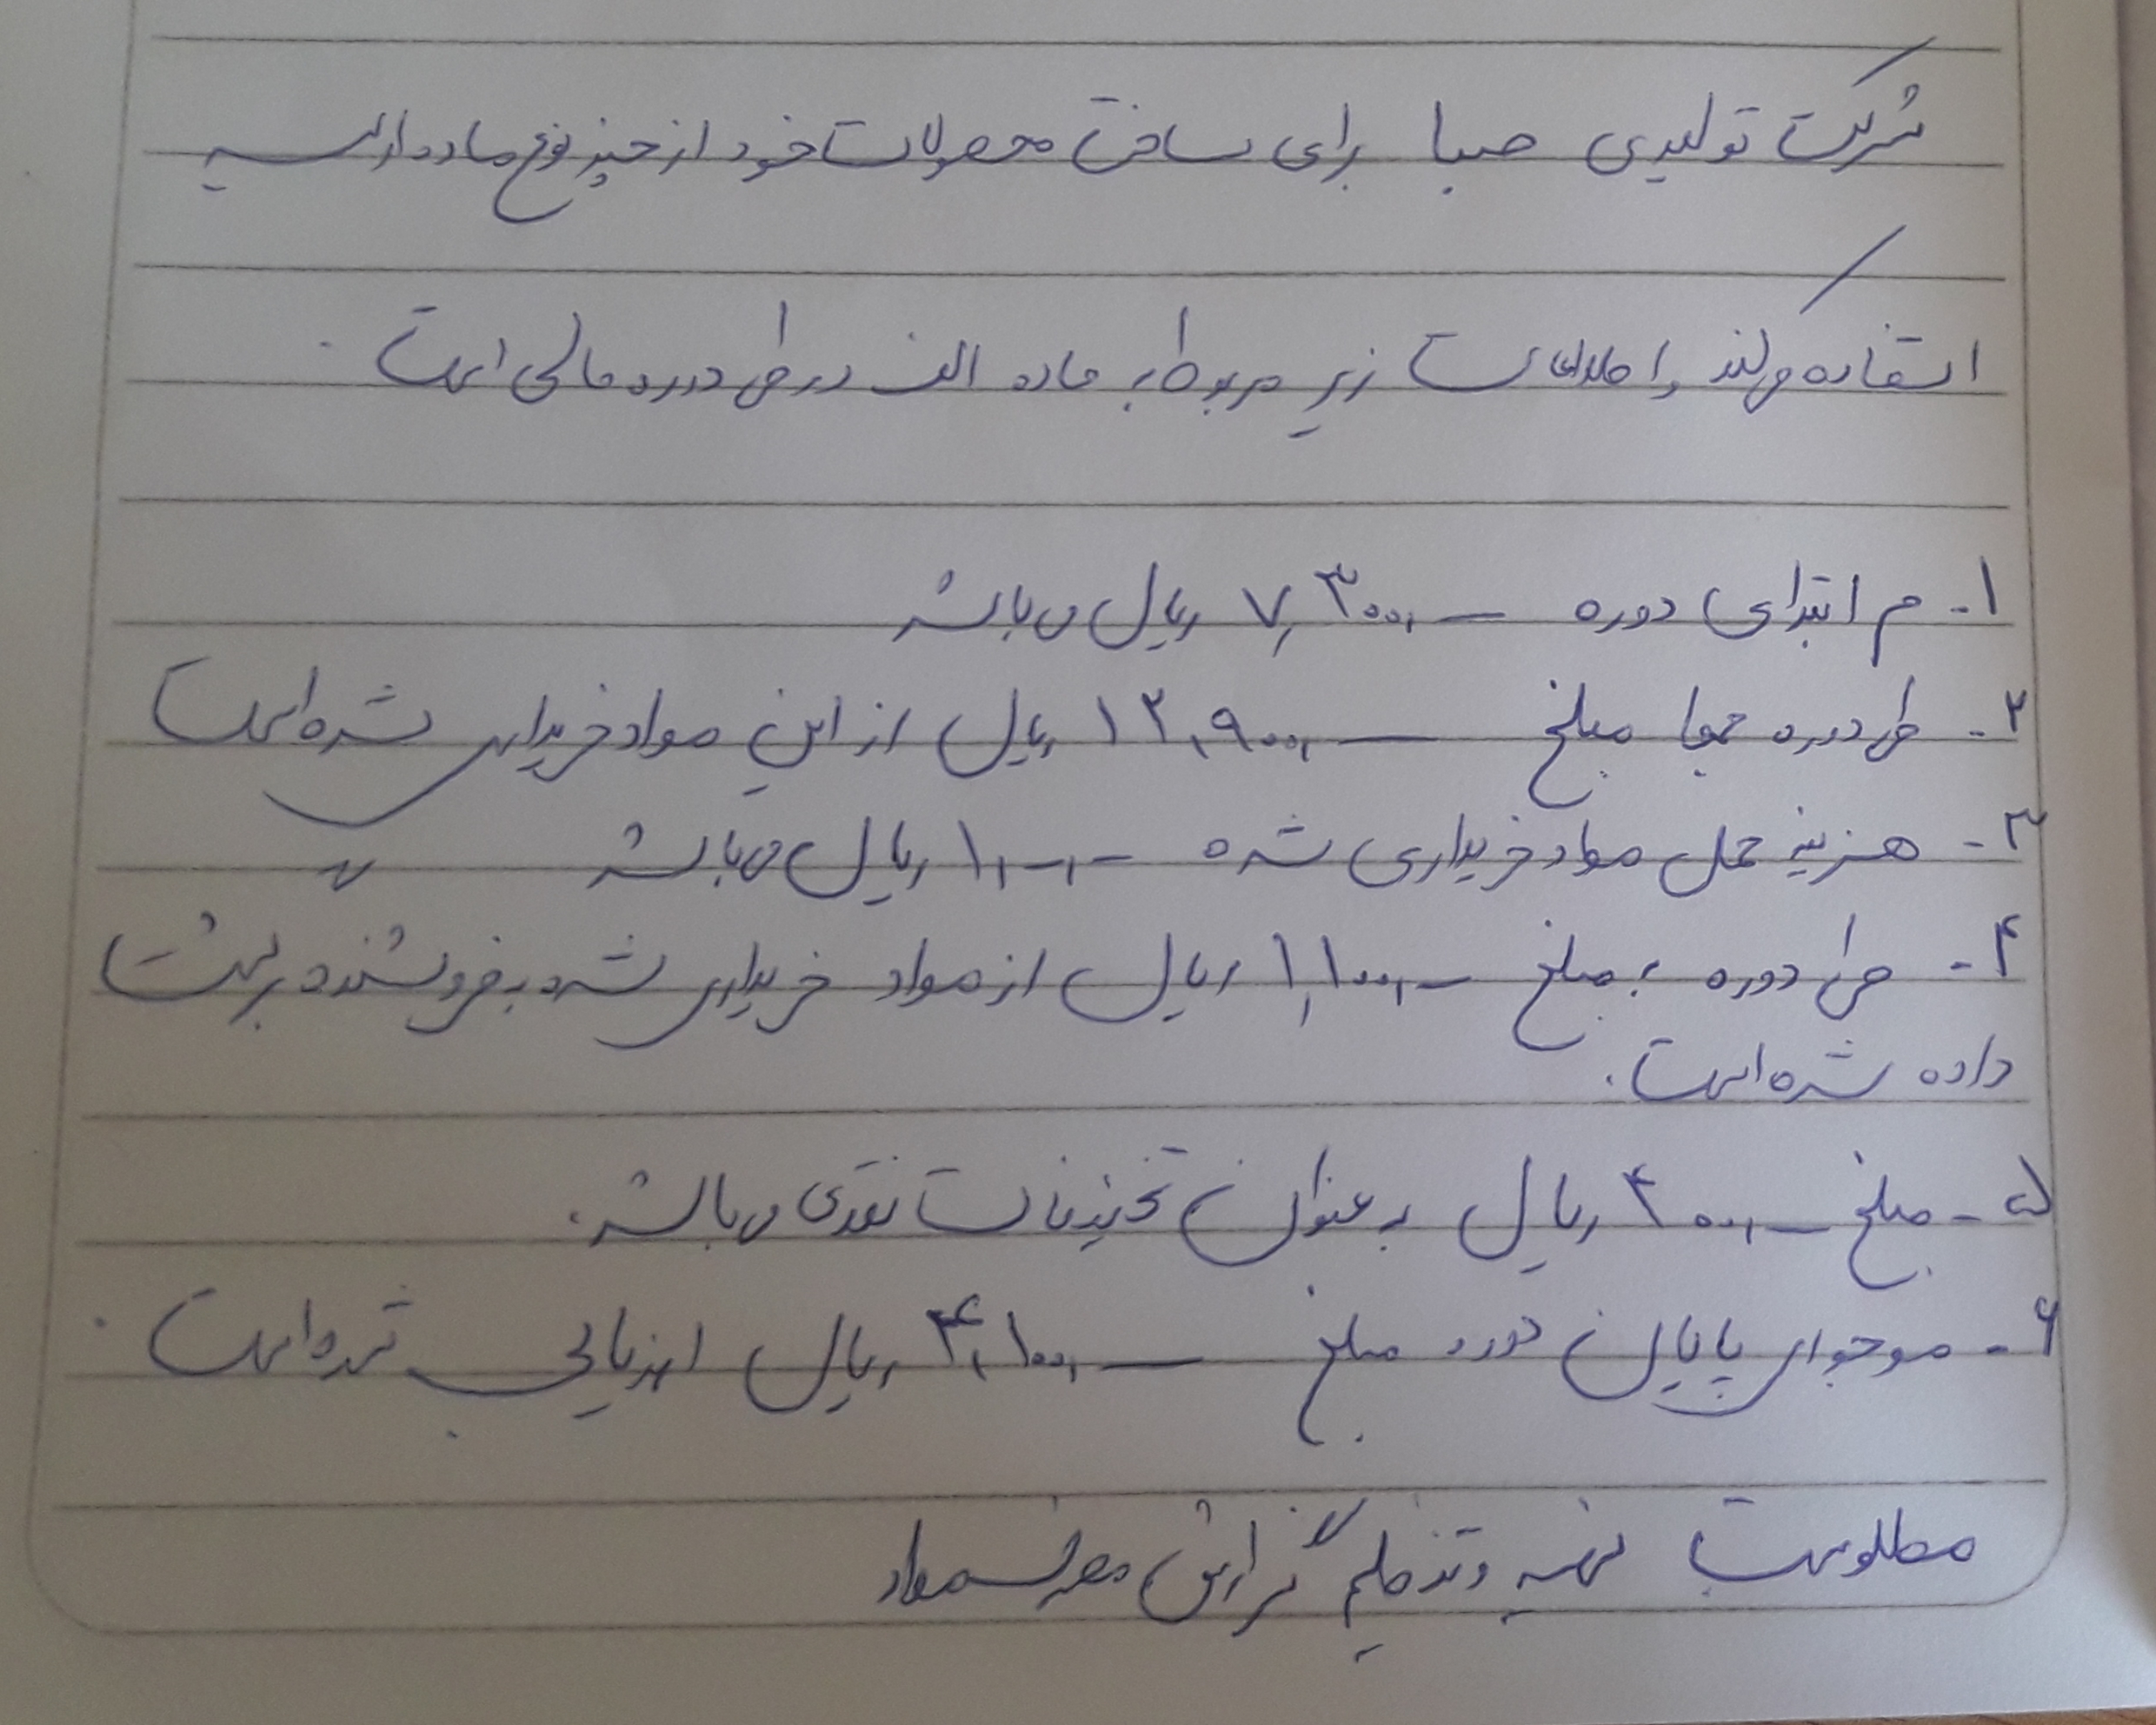 شرکت تولیدی صبا برای ساخت محصولات خود از چند نوع ماده اولیه
استفاده می‌کند و اطلاعات زیر مربوط به ماده الف در طی دوره مالی است.
۱- م ابتدای دوره ۷,۳۰۰,۰۰۰ ریال می باشد
۲- طی دوره جمعا مبلغ ۱۲,۹۰۰,۰۰۰ ریال از این مواد خریداری شده است
۳- هزینه حمل مواد خریداری شده ۱,۰۰۰,۰۰۰ ریال می باشد
۴- طی دوره به مبلغ ۱,۱۰۰,۰۰۰ ریال از مواد خریداری شده به فروشنده برگشت
داده شده است.
۵- مبلغ ۴۰۰,۰۰۰ ریال به عنوان تخفیفات نقدی می باشد.
۶- موجودی پایان دوره مبلغ ۴,۱۰۰,۰۰۰ ریال ارزیابی شده است.
مطلوبست تهیه و تنظیم گزارش مصرف مواد